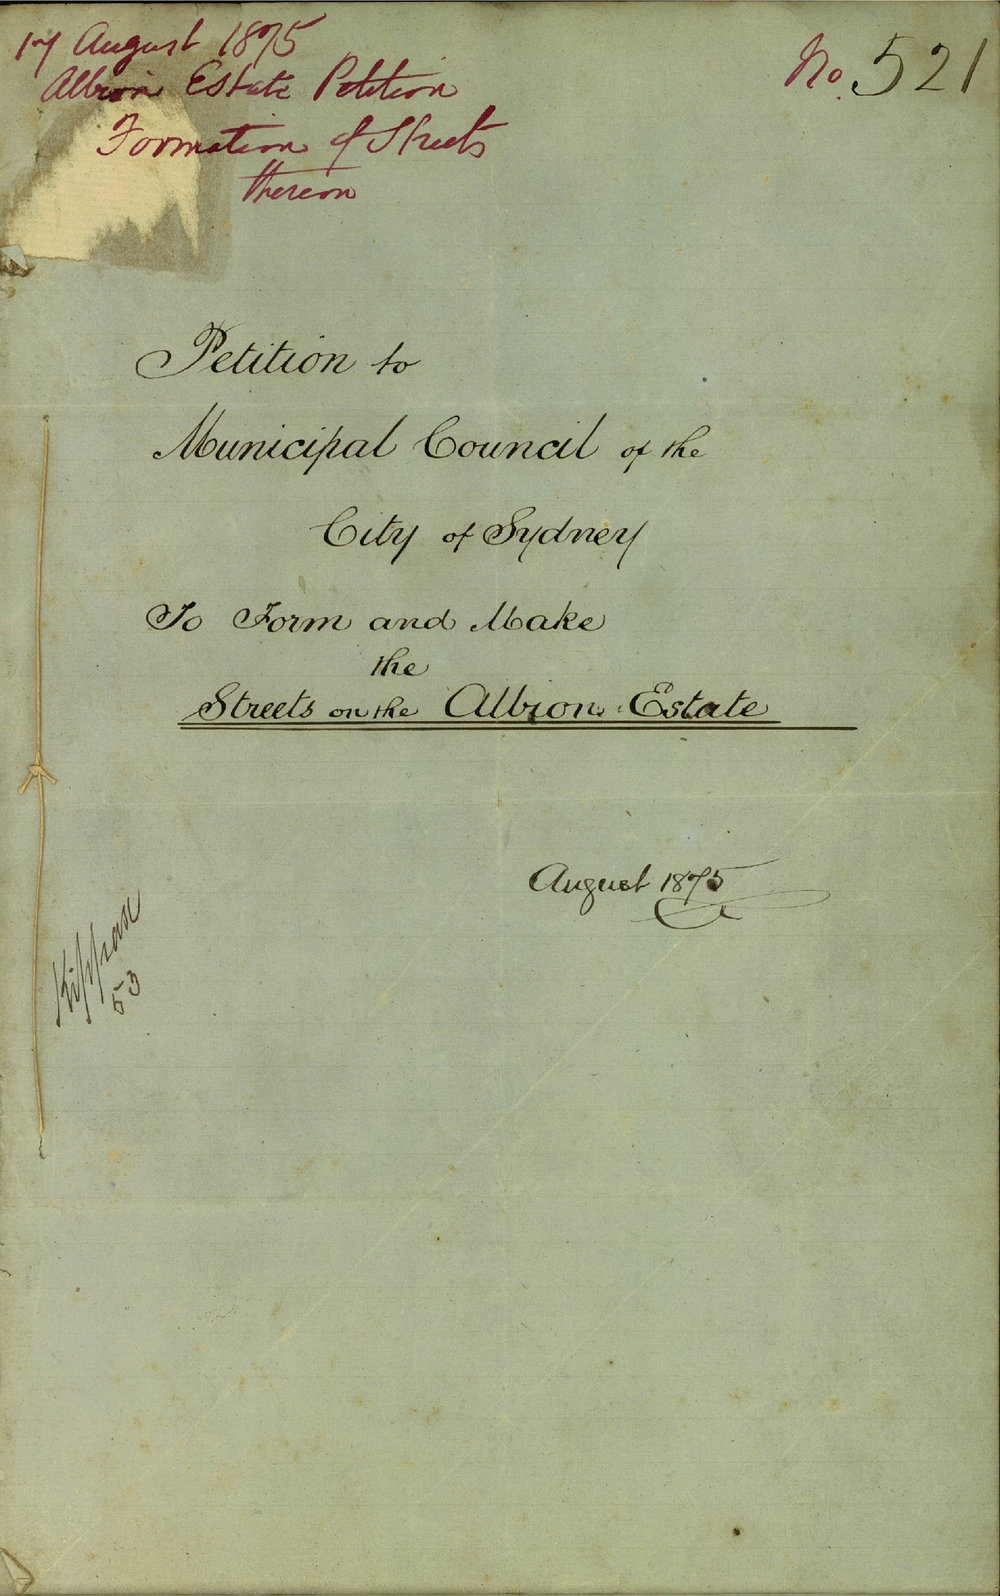 17 August 1875
Albion Estate Petition
Formation of Streets
thereon
No. 521
Petition to
Municipal Council of the
City of Sydney
To Form and Make
the
Streets on the Albion Estate
August 1875
Kippax
53